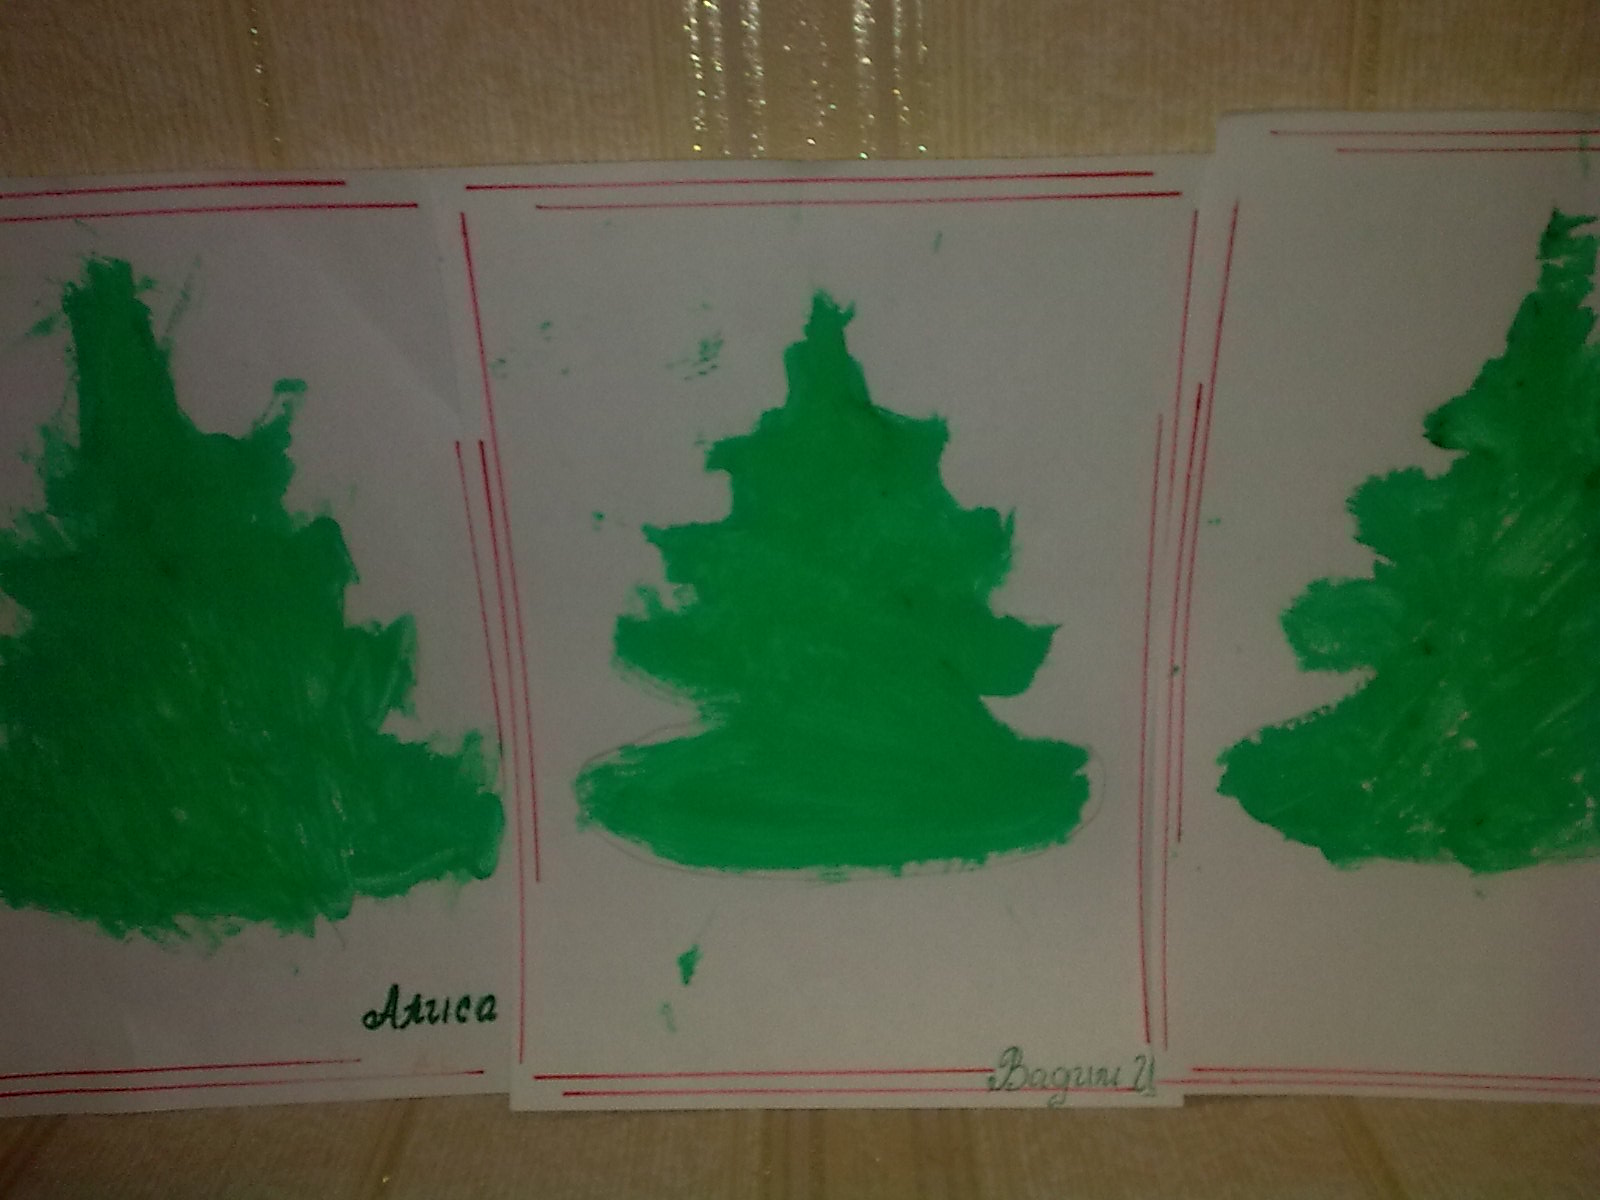 Алиса
Вадим И